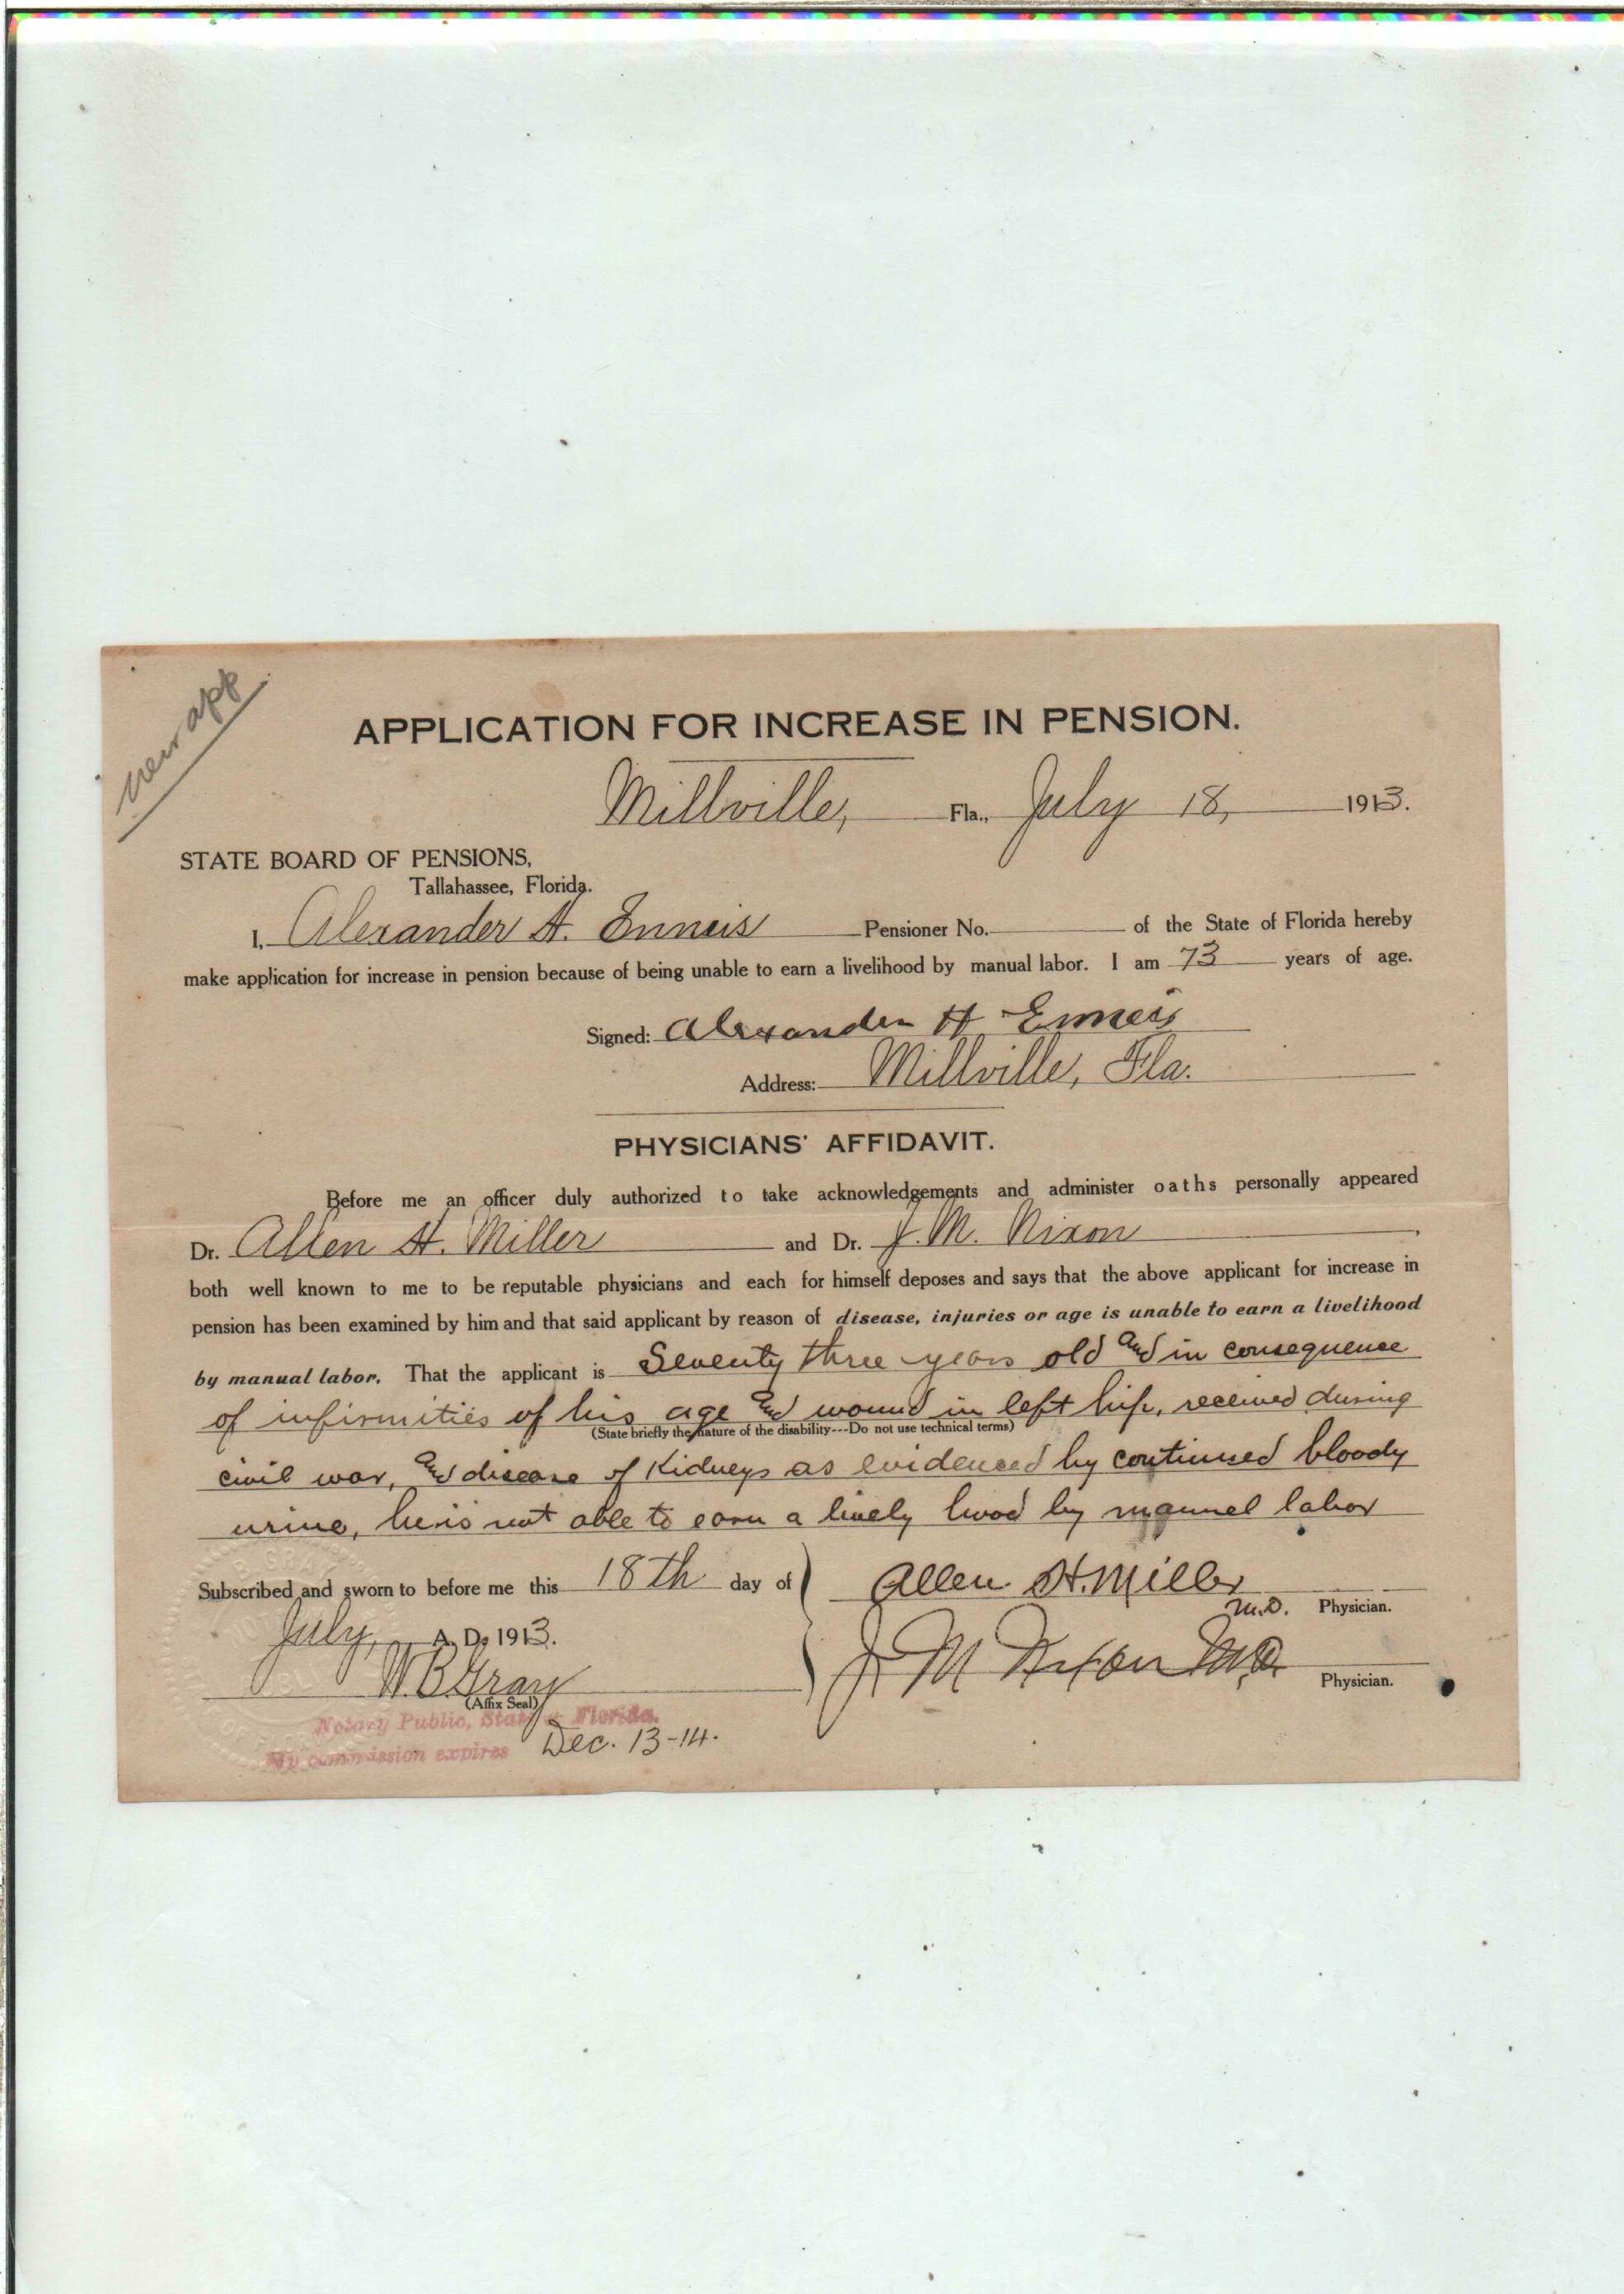 new app
APPLICATION FOR INCREASE IN PENSION.
Millville, Fla., July 18, 1913.
STATE BOARD OF PENSIONS,
Tallahassee, Florida.
I, Alexander H. Enneis Pensioner No. of the State of Florida hereby
make application for increase in pension because of being unable to earn a livelihood by manual labor. I am 73 years of age.
Signed: Alexander H Enneis
Address: Millville, Fla.
PHYSICIANS' AFFIDAVIT.
Before me an officer duly authorized to take acknowledgements and administer oaths personally appeared
Dr. Allen H. Miller and Dr. J. M. Nixon
both well known to me to be reputable physicians and each for himself deposes and says that the above applicant for increase in
pension has been examined by him and that said applicant by reason of disease, injuries or age is unable to earn a livelihood
by manual labor. That the applicant is Seventy three years old and in consequence
of infirmities of his age and wound in left hip, received during
(State briefly the nature of the disability---Do not use technical terms)
civil war, and disease of Kidneys as evidenced by continued bloody
urine, he is not able to earn a lively hood by mannel labor
Subscribed and sworn to before me this 18th day of
July, A. D. 1913.
Allen H. Miller
M.D. Physician.
J M Nixon M.D.
Physician.
W. B. Gray
(Affix Seal)
Notary Public, State of Florida.
My commission expires Dec. 13-14.